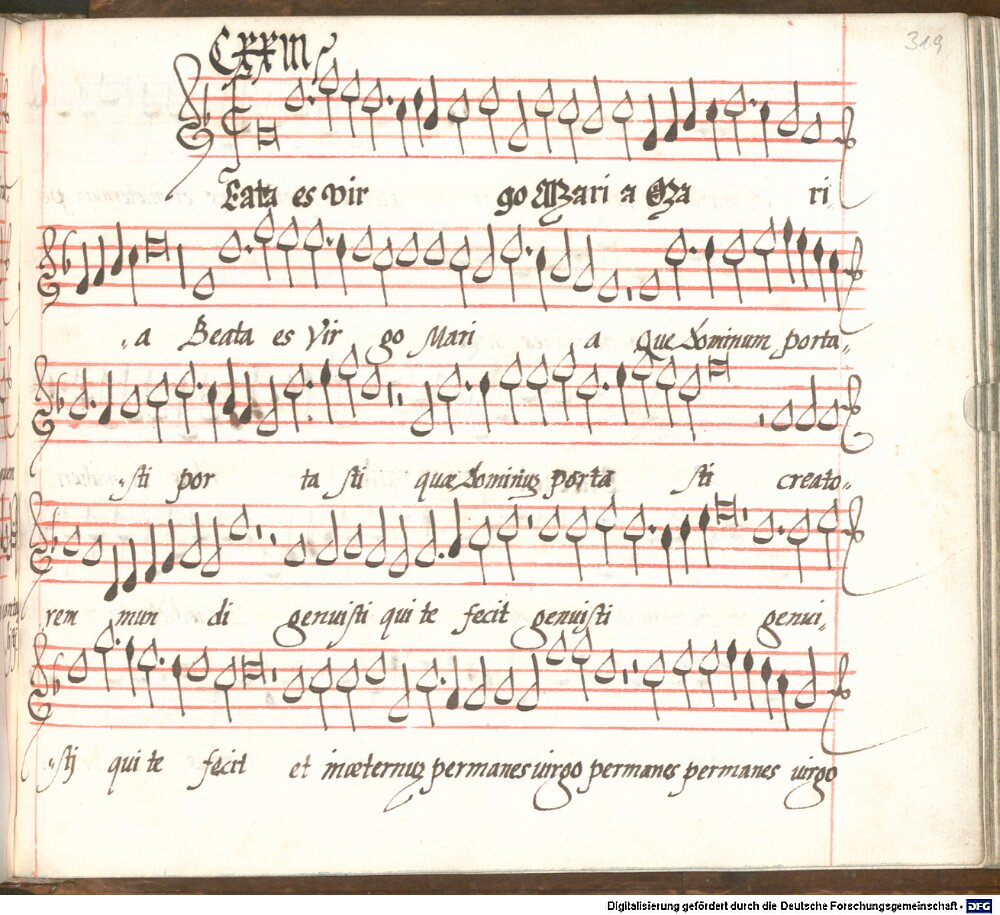 319
CXXIII
Eata es vir go Mari a Ma ri
a Beata es Vir go Mari a Que dominum porta
sti por ta sti quæ dominuʒ porta sti creato
rem mun di genuisti qui te fecit genuisti genui
stj qui te fecit et inæternuʒ permanes uirgo permanes permanes uirgo
Digitalisierung gefördert durch die Deutsche Forschungsgemeinschaft - DFG